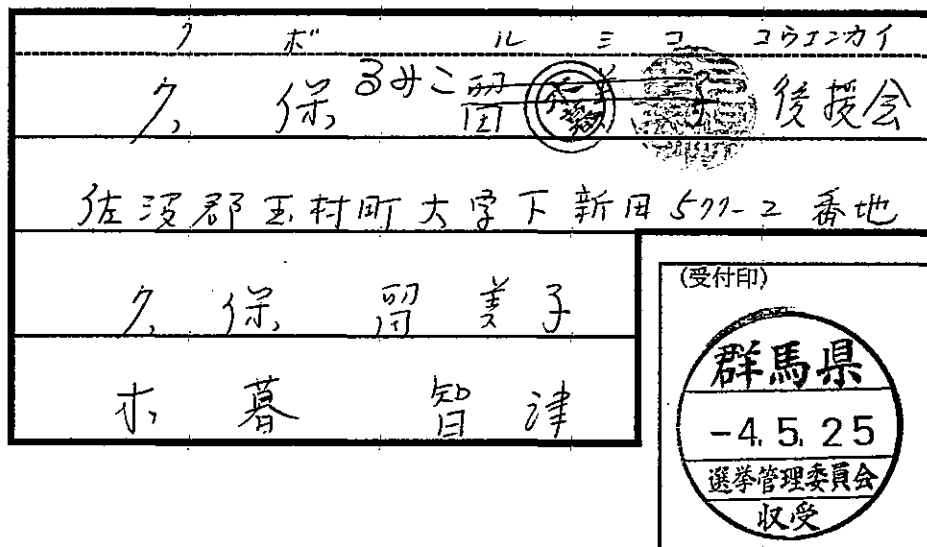 クボ ルミコ コウエンカイ
久保 るみこ 留美子 後援会
佐波郡玉村町大字下新田577-2番地
久保 留美子
(受付印)
木暮 智津
群馬県
-4.5.25
選挙管理委員会
収受